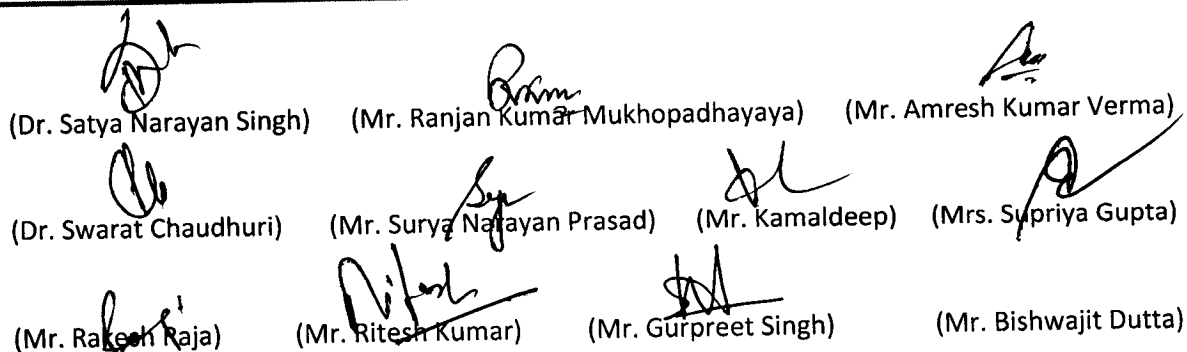 (Dr. Satya Narayan Singh) (Mr. Ranjan Kumar Mukhopadhayaya) (Mr. Amresh Kumar Verma)
(Dr. Swarat Chaudhuri) (Mr. Surya Narayan Prasad) (Mr. Kamaldeep) (Mrs. Supriya Gupta)
Ritesh
(Mr. Rakesh Raja) (Mr. Ritesh Kumar) (Mr. Gurpreet Singh) (Mr. Bishwajit Dutta)